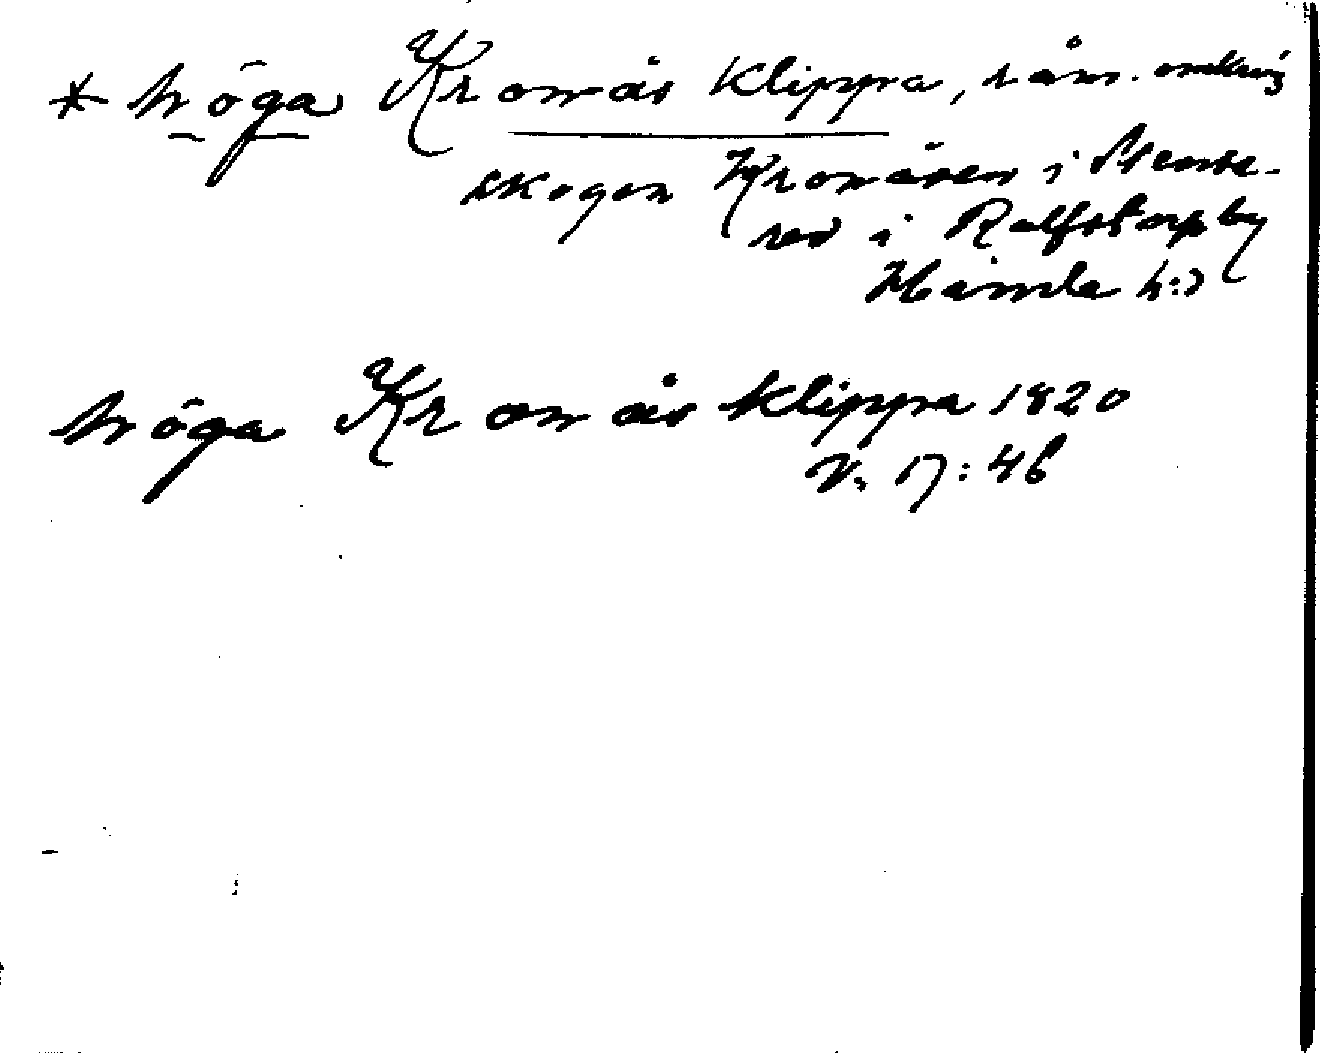 * höga Kronås klippa, råm. omkring
skogen Kronåsen i Stense-
red i Ralfstorp by
Himle h:d
höga Kronås klippa 1820
V. 17:46